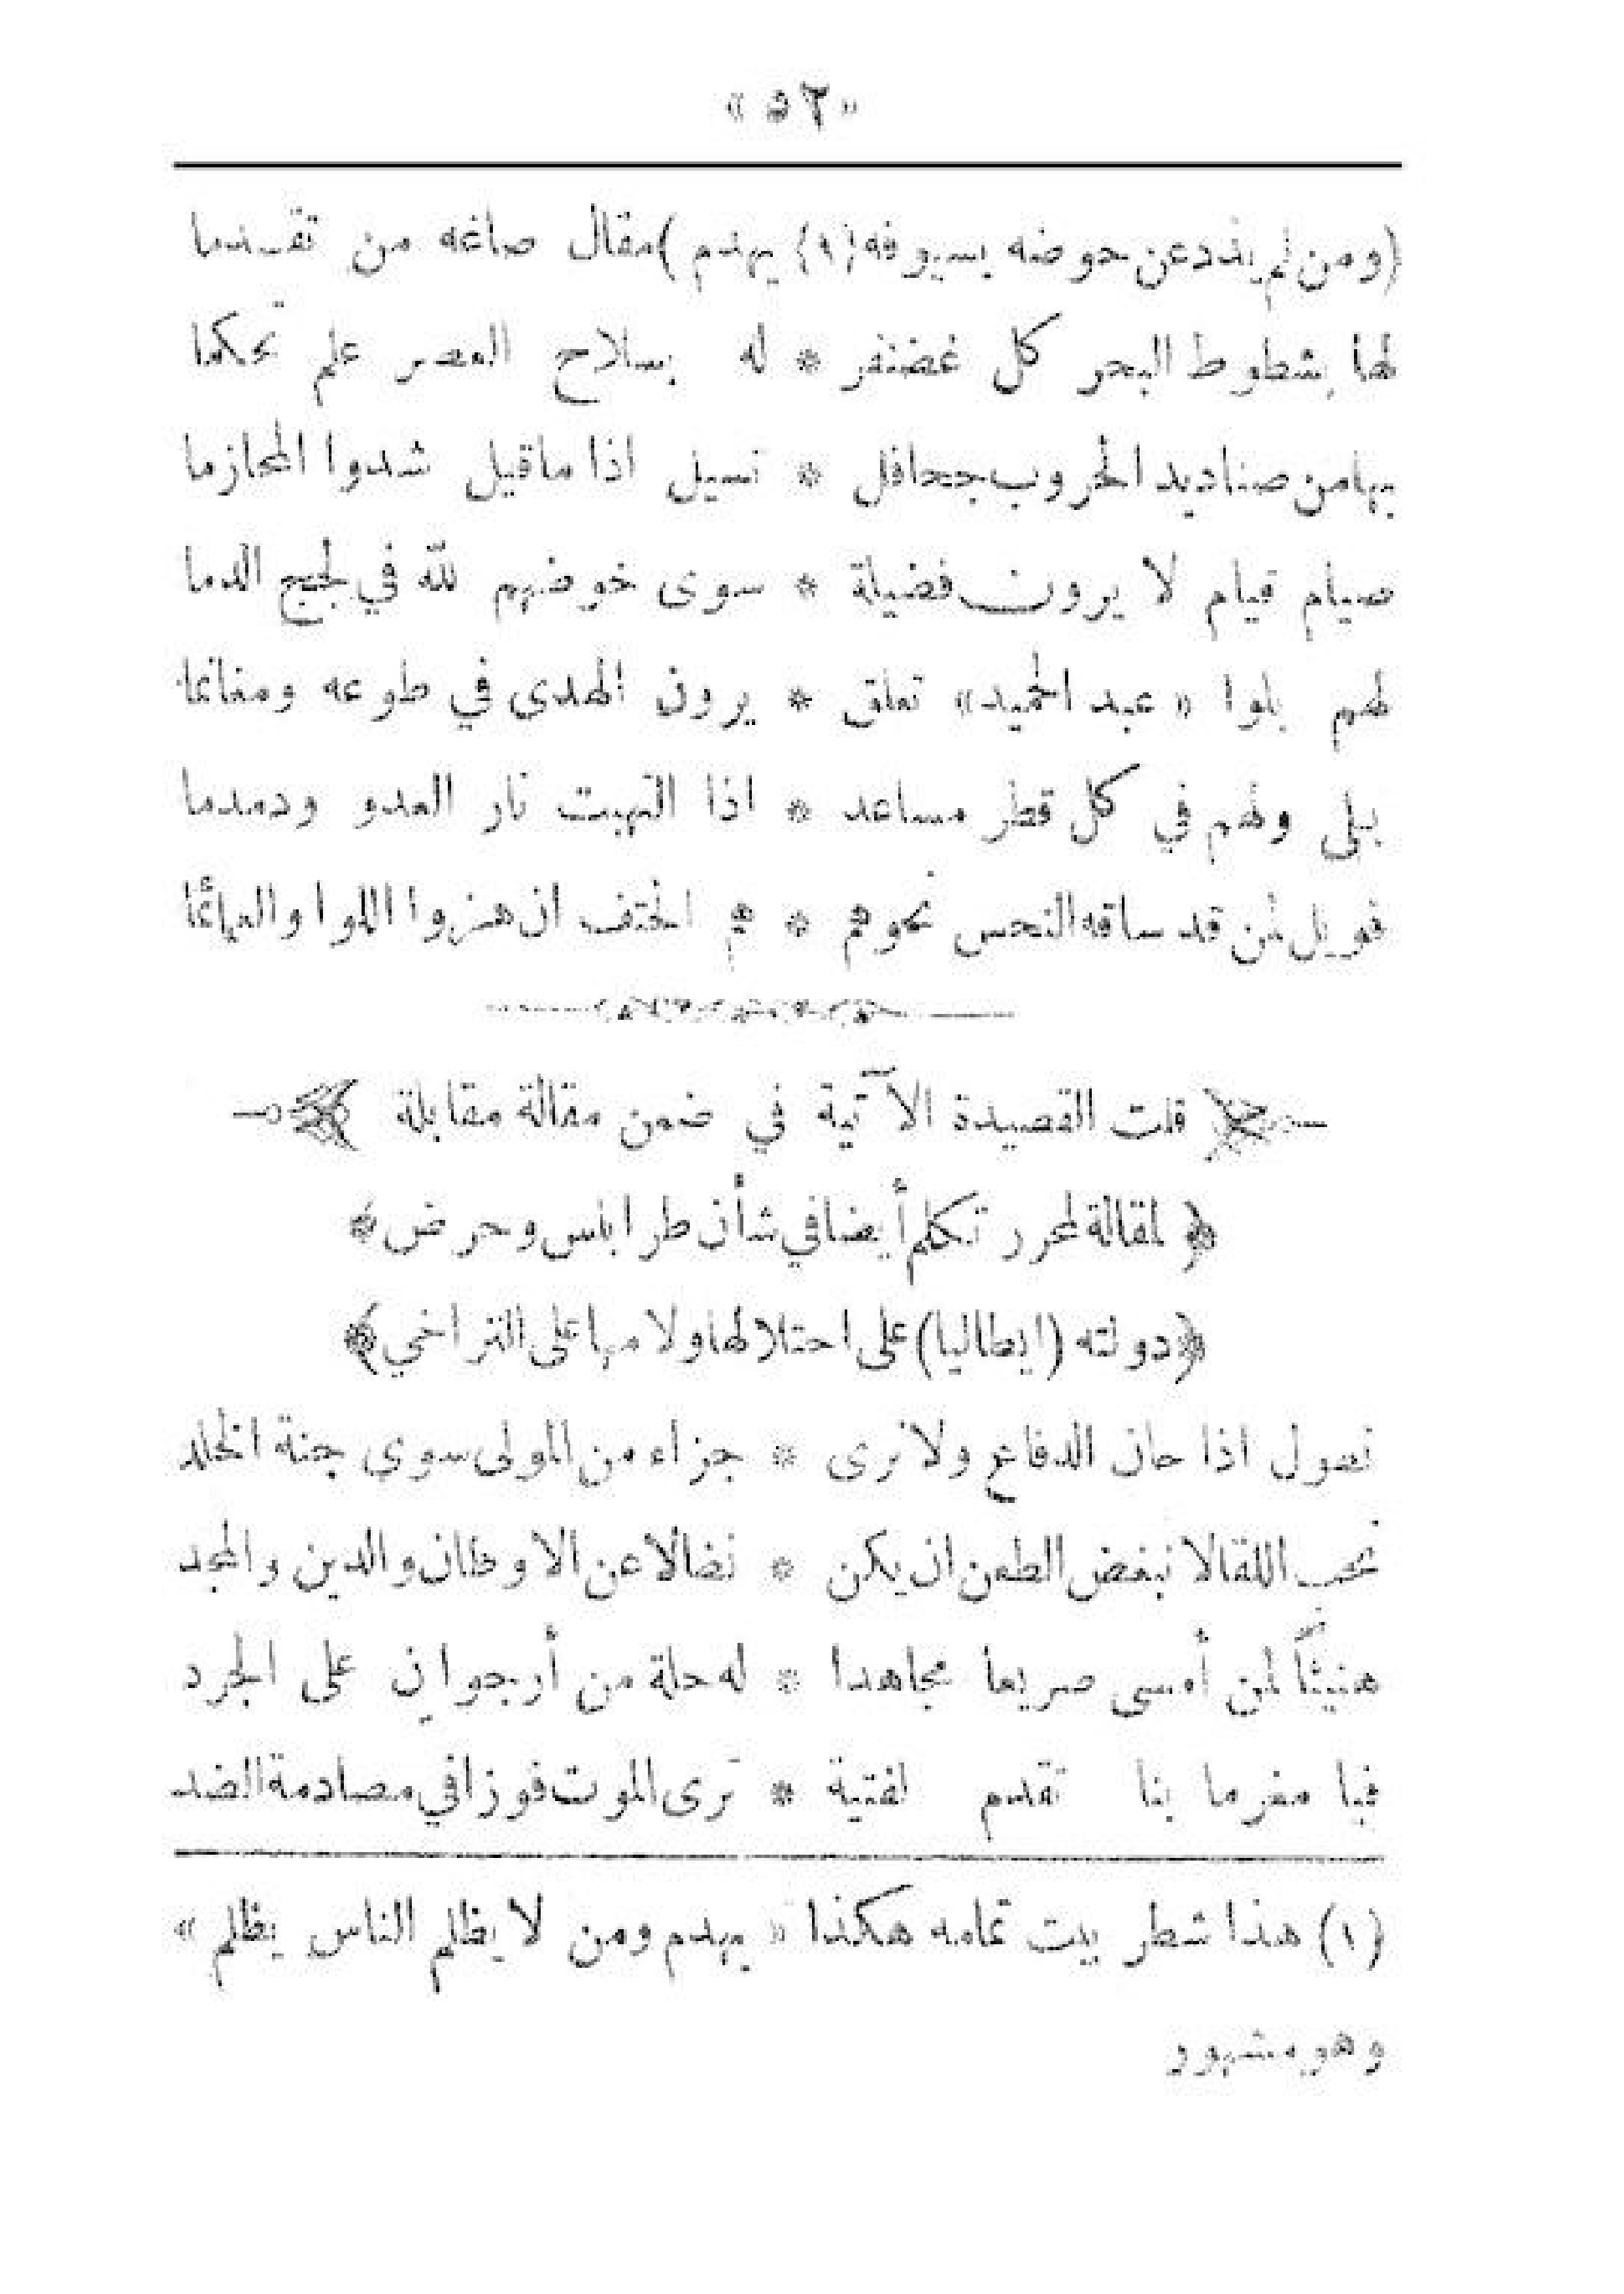 « ٥٢ »
(ومن لم يذد عن حوضه بسيوفه (١) يهدم) مقال صاغه من تقدما
لها بشطوط البحر كل غضنفر * له بسلاح العصر علم تحكما
بها من صناديد الحروب جحافل * تسيل اذا ما قيل شدوا المحازما
صيام قيام لا يرون فضيلة * سوى خوضهم لله في لجج الدما
لهم بلوا « عبد الحميد » تعلق * يرون الهدى في طوعه ومغانما
بلى ولهم في كل قطر مساعد * اذا التهبت نار العدو ودمدما
فويل لمن قد ساقه النحس نحوهم * هم الحتف ان هزوا اللوا والعمائما
قلت القصيدة الآتية في ضمن مقالة مقابلة
﴿ لمقالة لمحرر تكلم أيضا في شأن طرابلس وحرض ﴾
﴿ دولته (ايطاليا) على احتلالها ولامها على التراخي ﴾
نصول اذا حان الدفاع ولا نرى * جزاء من المولى سوى جنة الخلد
نحب اللقا لا نبغض الطعن ان يكن * نضالاً عن الاوطان والدين والمجد
هنيئاً لمن أمسى صريعا مجاهدا * له حلة من أرجوان على الجرد
فيا مغرما بنا تقدم لفتية * ترى الموت فوزا في مصادمة الضد
(١) هذا شطر بيت تمامه هكذا « يهدم ومن لا يظلم الناس يظلم »
وهو مشهور